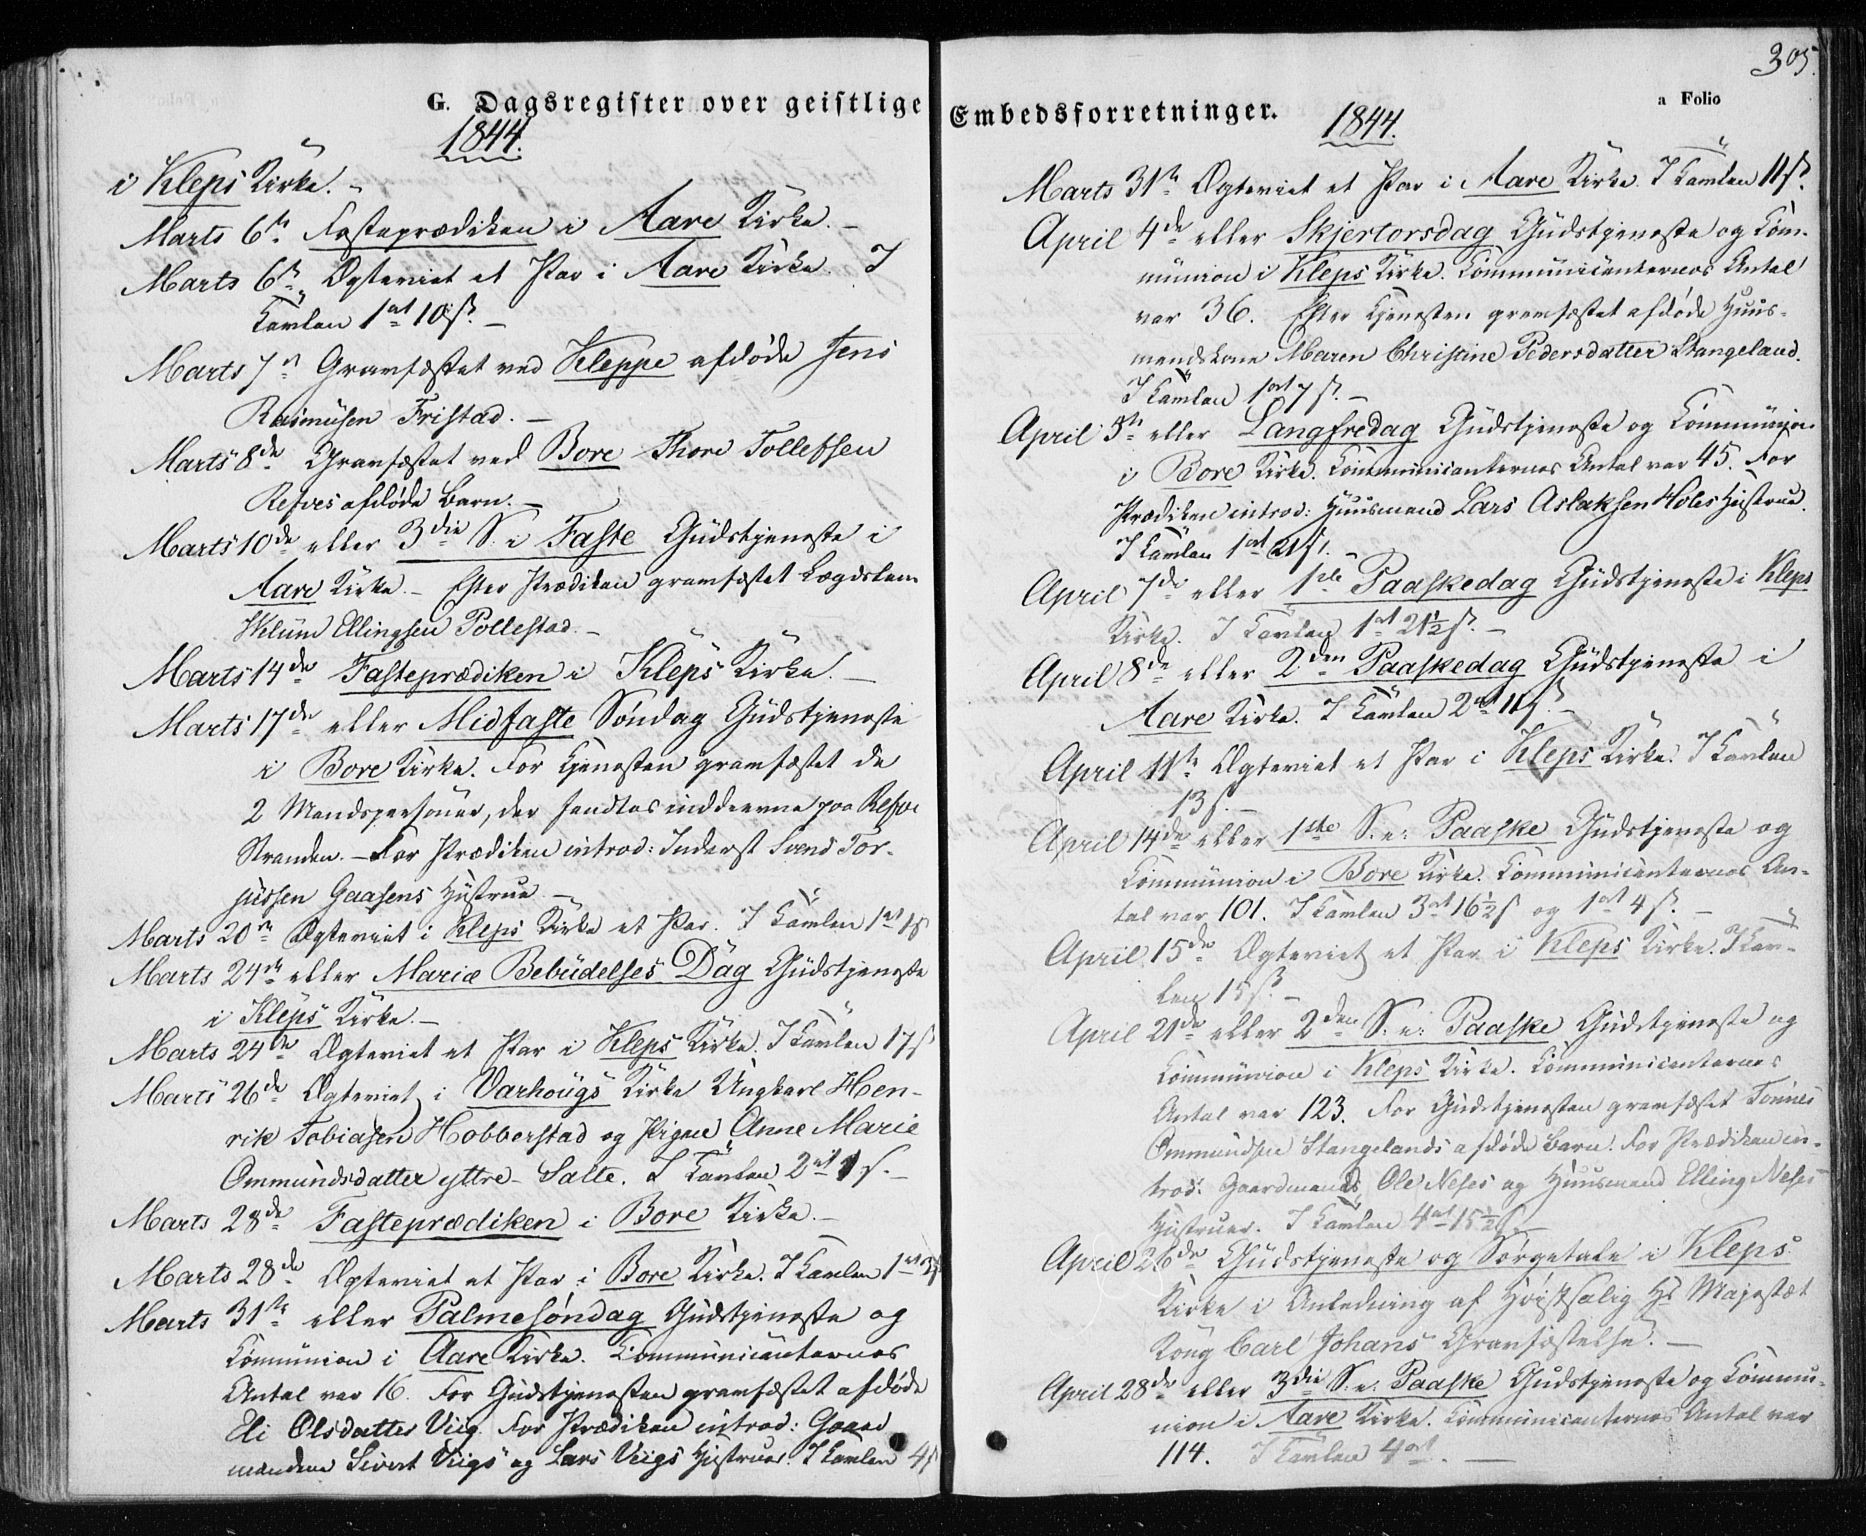 G. Dagsregister over geistlige
1844.
i Kleps Kirke. –
Marts 6te Fasteprædiken i Aare Kirke. –
Marts 6te Ægteviet et Par i Aare Kirke. I
Tavlen 1 ort 10 s. –
Marts 7de Gravfæstet ved Kleppe afdøde Jens
Rasmusen Fristad. –
Marts 8de Gravfæstet ved Bore Thore Tollefsen
Refves afdøde Barn. –
Marts 10de eller 3die S. i Faste Gudstjeneste i
Aare Kirke. – Efter Prædiken gravfæstet Lægdslem
Ellingsen Pollestad. –
Marts 14de Fasteprædiken i Kleps Kirke. –
Marts 17de eller Midfaste Søndag Gudstjeneste
i Bore Kirke. For Tjenesten gravfæstet de
2 Mandspersoner, der fandtes inddrevne paa Refve
Stranden. – For Prædiken introd: Inderst Svend Tor-
jussen Gaasens Hustrue –
Marts 20de Ægteviet i Kleps Kirke et Par. I Tavlen 1 ort 1 s
Marts 24de eller Mariæ Bebudelses Dag Gudstjeneste
i Kleps Kirke. –
Marts 24de Ægteviet et Par i Kleps Kirke. I Tavlen 17 s
Marts 26de Ægteviet i Varhougs Kirke Ungkarl Hen-
rik Tobiasen Hobberstad og Pigen Anne Marie
Ommundsdatter yttre-Salte. I Tavlen 2 ort 1 s. –
Marts 28de Fasteprædiken i Bore Kirke. –
Marts 28de Ægteviet et Par i Bore Kirke. I Tavlen 1 ort 3 s
Marts 31te eller Palmesøndag Gudstjeneste og
Communion i Aare Kirke. Communicanternes
Antal var 16. For Gudstjenesten gravfæstet afdøde
Eli Olsdatter Viig. For Prædiken introd: Gaard
mændene Sivert Viigs og Lars Viigs Hustruer. I Tavlen 4 s
Embedsforretninger.
a Folio
305.
1844.
Marts 31te Ægteviet et Par i Aare Kirke. I Tavlen 11 s.
April 4de eller Skjertorsdag Gudstjeneste og Com-
munion i Kleps Kirke. Communicanternes Antal
var 36. Efter Tjenesten gravfæstet afdøde Huus-
mandskone Maren Christine Pedersdatter Stangeland.
I Tavlen 1 ort 7 s. –
April 5te eller Langfredag Gudstjeneste og Communion
i Bore Kirke. Communicanternes Antal var 45. For
Prædiken introd: Huusmand Lars Aslaksen Holes Hustrue.
I Tavlen 1 ort 21 s. –
April 7de eller 1ste Paaskedag Gudstjeneste i Kleps
Kirke. I Tavlen 1 ort 21½ s. –
April 8de eller 2den Paaskedag Gudstjeneste i
Aare Kirke. I Tavlen 2 ort 11 s. –
April 11te Ægteviet et Par i Kleps Kirke. I Tavlen
13 s. –
April 14de eller 1ste S. e: Paaske Gudstjeneste og
Communion i Bore Kirke. Communicanternes An-
tal var 101. I Tavlen 3 ort 16½ s og 1 ort 4 s. –
April 15de Ægteviet et Par i Kleps Kirke. I Tav-
len 15 s. –
April 21de eller 2den S. e: Paaske Gudstjeneste og
Communion i Kleps Kirke. Communicanternes
Antal var 123. For Gudstjenesten gravfæstet Tønnes
Ommundsen Stangelands afdøde Barn. For Prædiken in-
trod: Gaardmands Ole Neses og Huusmand Elling Neses
Hustruer. I Tavlen 4 ort 15½ s. –
April 26de Gudstjeneste og Sørgetale i Kleps
Kirke i Anledning af Høistsalig Hs Majestæt
Kong Carl Johans Gravfæstelse. –
April 28de eller 3die S. e: Paaske Gudstjeneste og Commu-
nion i Aare Kirke. Communicanternes Antal var
114. I Tavlen 4 ort. –